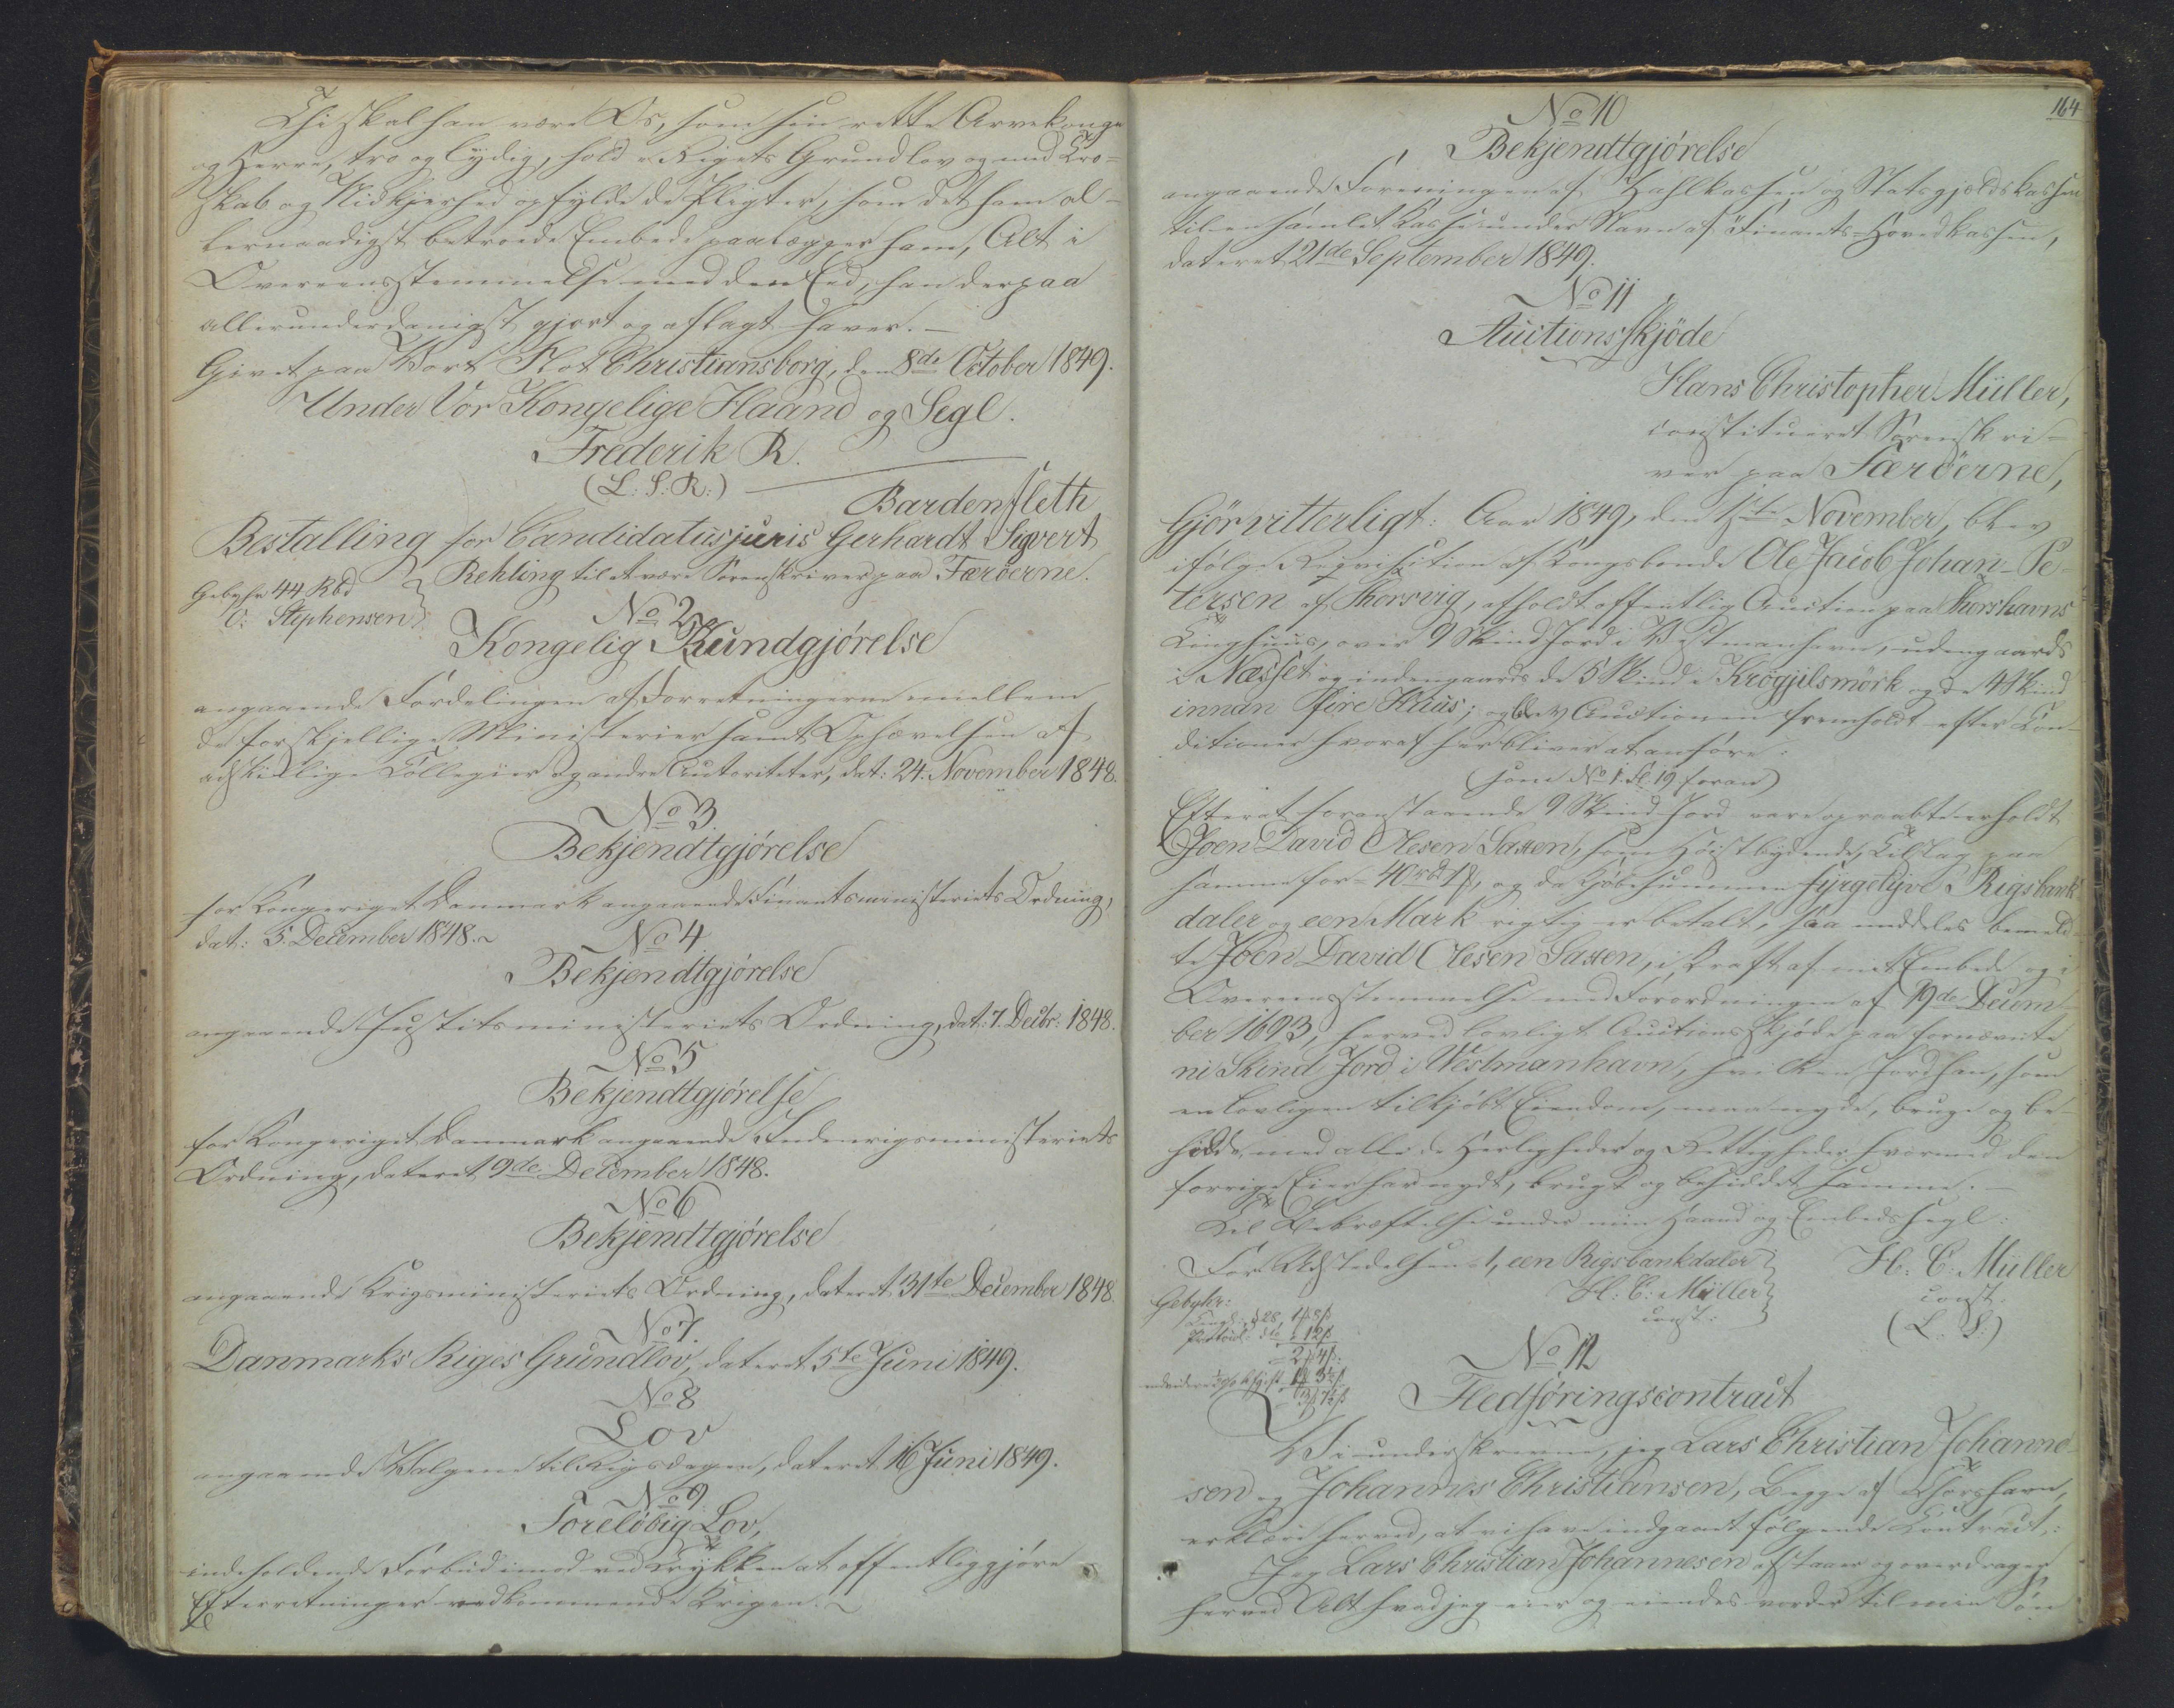 Thi skal han være Os, som sin rette Arvekonge
og Herre, tro og lydig, hold Rigets Grundlov og med Tro-
skab og Nidkjerhed opfylde de Pligter, som det ham al-
lernaadigst betroede Embede paalægger ham, Alt i
Overeensstemmelse med den Eed, han derpaa
allerunderdanigst gjort og aflagt haver. —
Givet paa Vort Slot Christiansborg, den 8de October 1849.
Under Vor Kongelige Haand og Segl.
Frederik R.
(L: S: R:)
Bardenfleth
Bestalling for Candidatus juris Gerhardt Sigvert
Rehling til at være Sorenskriver paa Færöerne.
Gebyhr 44 Rbd
O: Stephensen
No 2
Kongelig Kundgjørelse
angaaende Fordelingen af Forretningerne mellem
de forskjellige Ministerier samt Ophævelsen af
adskillige Collegier og andre Autoriteter, dat: 24. November 1848.
No 3.
Bekjendtgjørelse
for Kongeriget Danmark angaaende Finantsministeriets Ordning,
dat: 5. December 1848.
No 4
Bekjendtgjørelse
angaaende Justitsministeriets Ordning, dat: 7. Decbr: 1848.
No 5
Bekjendtgjørelse
for Kongeriget Danmark angaaende Indenrigsministeriets
Ordning, dateret 9de December 1848.
No 6
Bekjendtgjørelse
angaaende Krigsministeriets Ordning, dateret 31te December 1848.
No 7.
Danmarks Riges Grundlov, dateret 5te Juni 1849.
No 8
Lov
angaaende Valgene til Rigsdagen, dateret 16 Juni 1849.
No 9
Foreløbig Lov,
indeholdende Forbud imod ved Trykken at offentliggjøre
Efterretninger vedkommende Krigen.
164
No 10
Bekjendtgjørelse
angaaende Foreningen af Zahlkassen og Statsgjeldskassen
til en samlet Kasse under Navn af Finants-Hovedkassen,
dateret 21de September 1849.
No 11
Auctionsskjöde
Hans Christopher Müller,
constitueret Sorenskri-
ver paa Færöerne,
Gjör vitterligt: Aar 1849, den November, blev
ifølge Reqvisition af Kongsbonde Ole Jacob Johan-Pe-
tersen af Thorsvig, afholdt offentlig Auction paa Thorshavns
Tinghuus, over 9 Skind Jord i Vestmanhavn, udengaards
i Næsset og indengaards de 5 Skind i Krögjilsmörk og de 4 Skind
innan fire Huus; og blev Auctionen fremholdt efter Con-
ditioner hvoraf her bliver at anføre:
(som No 1. Fl 19 foran)
Efterat foranstaaende 9 Skind Jord vare opraabte erholdt
Joen David Olesen Saxen, som Høistbydende, Tilslag paa
samme for 40 rbd 1, og da Kjøbesummen fyrgetyve Rigsbank-
daler og een Mark rigtig er betalt, saa meddeles bemeld-
te Joen David Olesen Saxen, i Kraft af mit Embede og i
Overeensstemmelse med Forordningen af 19de Decem-
ber 1693, herved lovligt Auctions Skjøde paa fornævnte
ni Skind Jord i Westmanhavn, hvilken Jord han, som
en lovligen tilkjøbt Eiendom, maa nyde, bruge og be-
sidde, med alle de Herligheder og Rettigheder hvormed den
forrige Eier har nydt, brugt og besiddet samme. —
Til Bekræftelse under min Haand og Embeds Segl:
For Udstedelsen 1, een Rigsbankdaler
H: C: Müller
H: C: Müller
const:
const.
(L: S:)
Gebyhr:
No 12
Fledføringscontract
Vi underskrevne, jeg Lars Christian Johanne-
sen og Johannes Christiansen, Begge af Thorshavn,
erklære herved, at vi have indgaaet følgende Contract:
Jeg Lars Christian Johannesen afstaaer og overdrager
herved Alt hvad jeg eier og eiendes vorder til min Søn